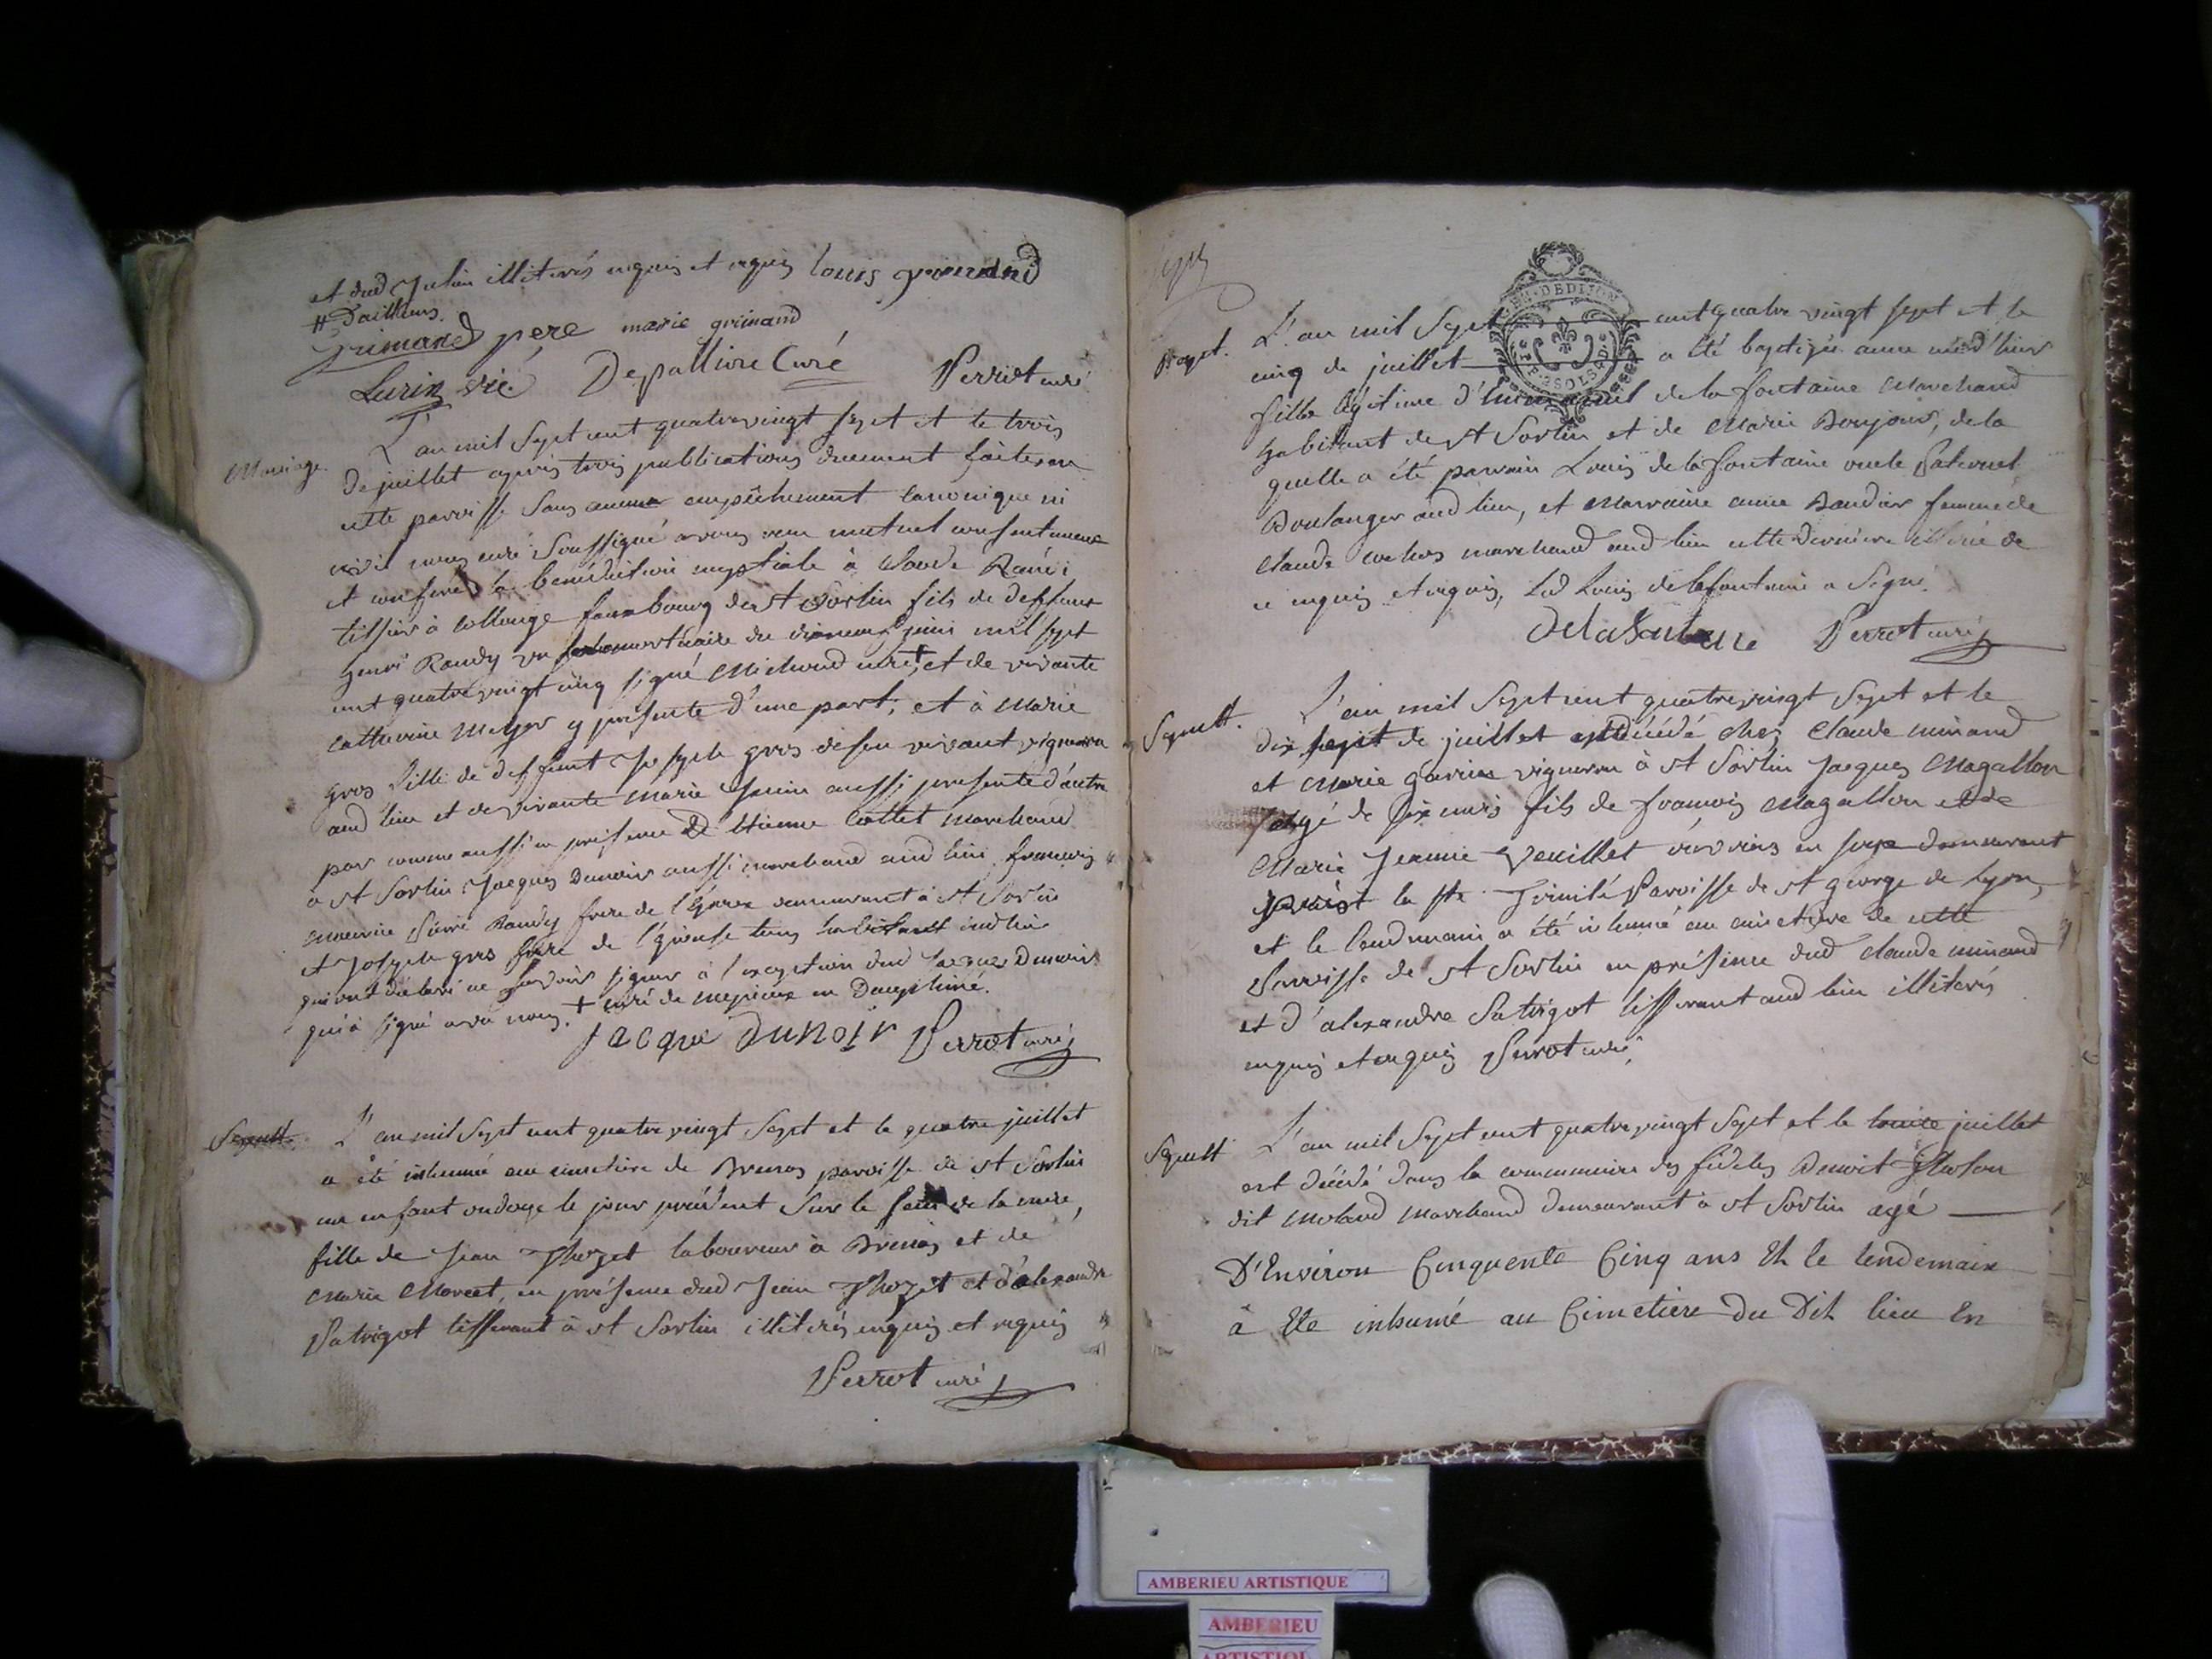 et dud Julien illiterés enquis et requis louis grimand
# Dailleurs.
Grimand pere marie grimand
Lurin vic Depalliere Curé Perrot curé
Mariage. L'an mil sept cent quatre vingt sept et le trois
de juillet apres trois publications duement faites en
cette paroisse sans aucun empêchement canonique ni
civil nous curé soussigné avons reçu mutuel consentement
et conferé la benédiction nuptiale à Claude
tissier à Collonge fauxbourg de st Sorlin fils de deffunt
henri Randy vu mortuaire du juin mil sept
cent quatre vingt cinq signé Michoud curé + et de vivante
catherine Meyer y presente d'une part, et à Marie
gros fille de deffunt Joseph gros de son vivant vigneron
aud lieu et de vivante Marie aussi presente d'autre
par comme aussi en presence Etienne Cottet Marchand
à st Sorlin Jacques Dunoir aussi marchand aud lieu françois
Pierre Randy frere de l'epoux demeurant à st Sorlin
et Joseph gros frere de l'épouse tous habitant aud lieu
qui ont declaré ne savoir signer à l'exception dud Jacques Dunoir
qui a signé avec nous. + curé de mepieux en Dauphiné.
Jacque dunoir Perrot curé
Sepult. L'an mil sept cent quatre vingt sept et le quatre juillet
a été inhumé au cimetiere de paroisse de st Sorlin
un enfant ondoyé le jour précédent sur le sein de la mere,
fille de Jean Thozet laboureur à et de
Marie Moreet, en présence dud Jean Thozet et d'alexandre
Patrigot tisserant à st Sorlin illiterés enquis et requis
Perrot curé
EN. DE DIJON
Bapt. L'an mil sept cent quatre vingt sept et le
cinq de juillet a été baptisée anne née d'hier
fille légitime d'Emmanuel de la fontaine Marchand
habitant de st Sorlin et de Marie Bonjour, de la
quelle a été parrain Louis de la fontaine oncle Paternel
Boulanger aud lieu, et Marraine anne Baudier femme de
claude cochos marchand aud lieu cette derniere illiteré de
ce enquis et requis, Led Louis de la fontaine a signé.
Delafontaine Perrot curé
Sepult. L'an mil sept cent quatre vingt sept et le
dix sept de juillet est décédé chez Claude minand
et Marie vigneron à st Sorlin Jacques Magallon
agé de six mois fils de françois Magallon et de
Marie Jeanne Veuillet ouvriers en soye demeurant
la ste Trinité Paroisse de st george de Lyon,
et le lendemain a été inhumé au cimetiere de cette
Paroisse de st Sorlin en présence dud claude minand
et d'alexandre Patrigot tisserant aud lieu illiterés
enquis et requis Perrot curé
Sepult L'an mil sept cent quatre vingt sept et le treize juillet
est décédé dans la communion des fideles Benoit
dit Moland Marchand demeurant à st Sorlin agé
D'Environ Cinquente Cinq ans Et le lendemain
à Ete inhumé au Cimetiere Du Dit lieu En
AMBERIEU ARTISTIQUE
AMBERIEU
ARTISTIQUE